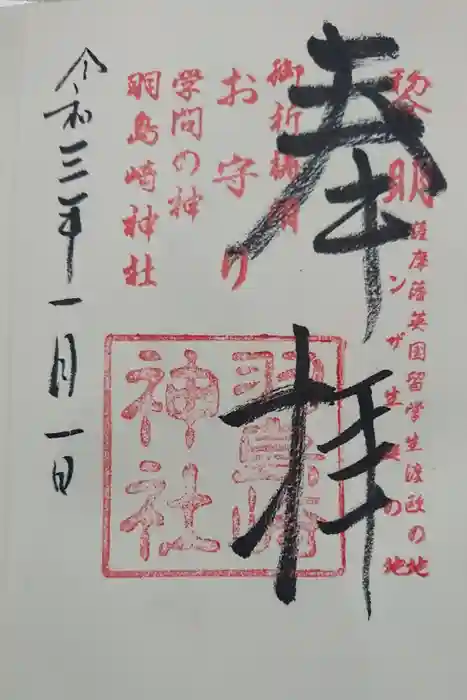 奉拝
黎明
薩摩藩英国留学生渡欧の地
ンザ生誕の地
御祈祷
お守り
学問の神
羽島崎神社
羽島崎
神社
令和三年一月一日